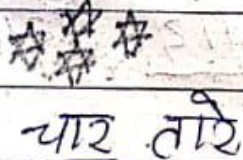 चार तारे